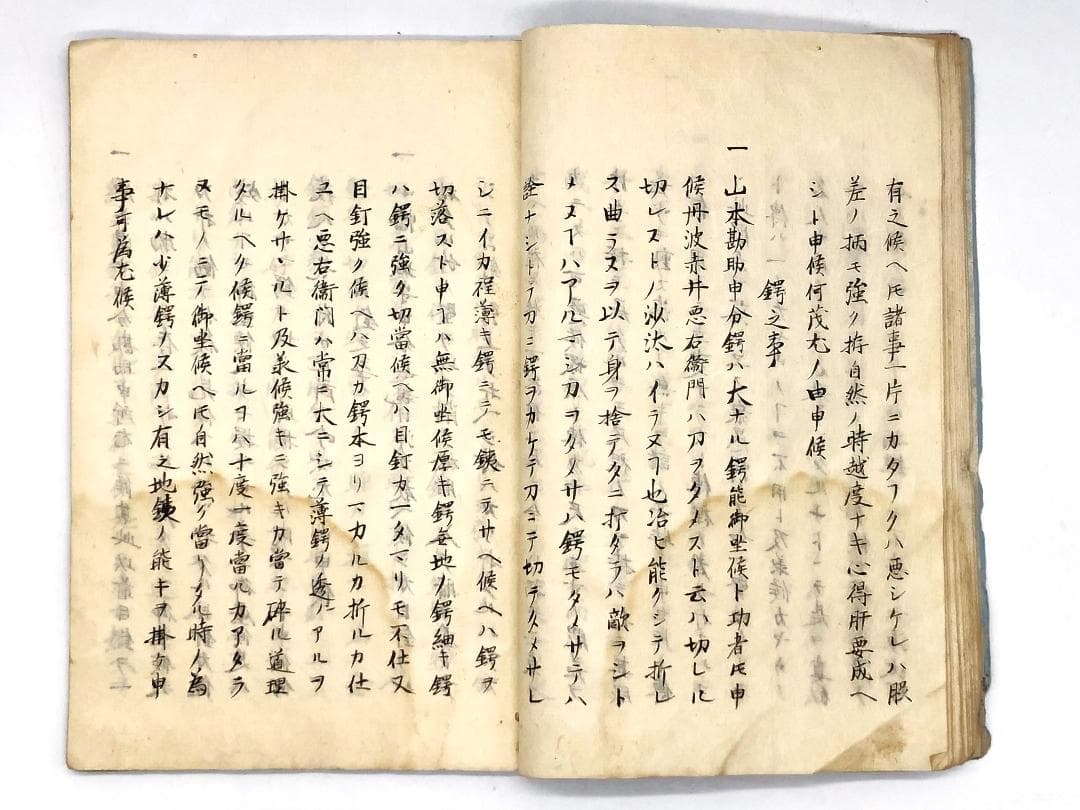 有之候ヘ𪜈諸事一片ニカタフクハ悪シケレハ脇
差ノ柄モ強ク拵自然ノ時越度ナキ心得肝要成ヘ
シト申候何茂尤ノ由申候
鍔之事
一 山本勘助申分鍔ハ大ナル鍔能御坐候ト功者𪜈申
候丹波赤井悪右衛門ハ刀ヲタメスト云ハ切レルヒ
切レストノ沙汰ハイラヌヿ也冶ヒ能クシテ折レ
ス曲ラヌヲ以テ身ヲ捨テタニ打タラハ敵ヲシト
メヌヿハアルマシ刀ヲタメサハ鍔モタメサテハ
詮ナシトテ刀ニ鍔ヲカケテ刀ニテ切テタメサレ
シニイカ程薄キ鍔ニテモ鉄ニテサヘ候ヘハ鍔ヲ
切落スト申ヿハ無御坐候厚キ鍔無地ノ鍔細キ鍔
ハ鍔ニ強ク切當候ヘハ目釘カ一タマリモ不仕又
目釘強ク候ヘハ刀カ鍔本ヨリマカルカ折ルカ仕
ユヘ悪右衛門ハ常ニ大ニシテ薄鍔ノ透ノアルヲ
掛ケサシルト及承候強キニ強キカ當テ碎ル道理
タルヘク候鍔ニ當ルヿハ十度ニ一度當ルカアタラ
ヌモノニテ御坐候ヘ𪜈自然強ク當タル時ノ為
ナレハ少薄鍔ノスカシ有之地鉄ノ能キヲ掛ケ申
事可為尤候
一